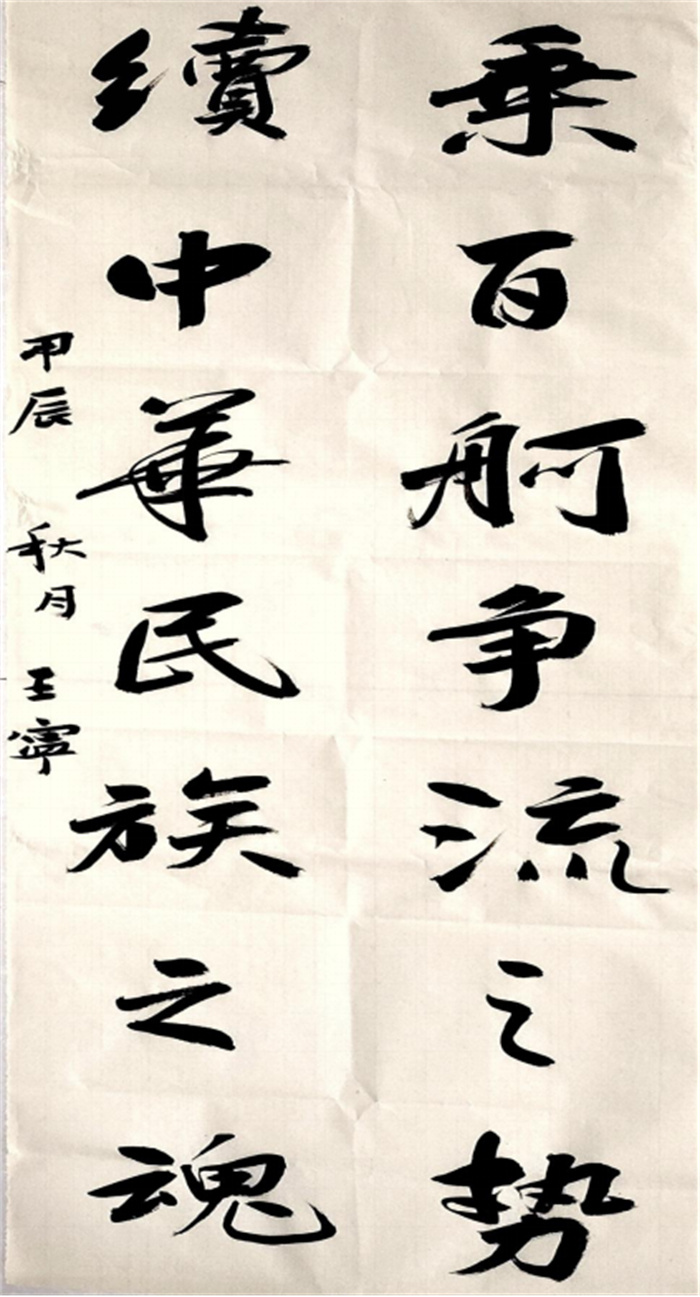 乗百舸争流之势
續中華民族之魂
甲辰 秋月 王寧